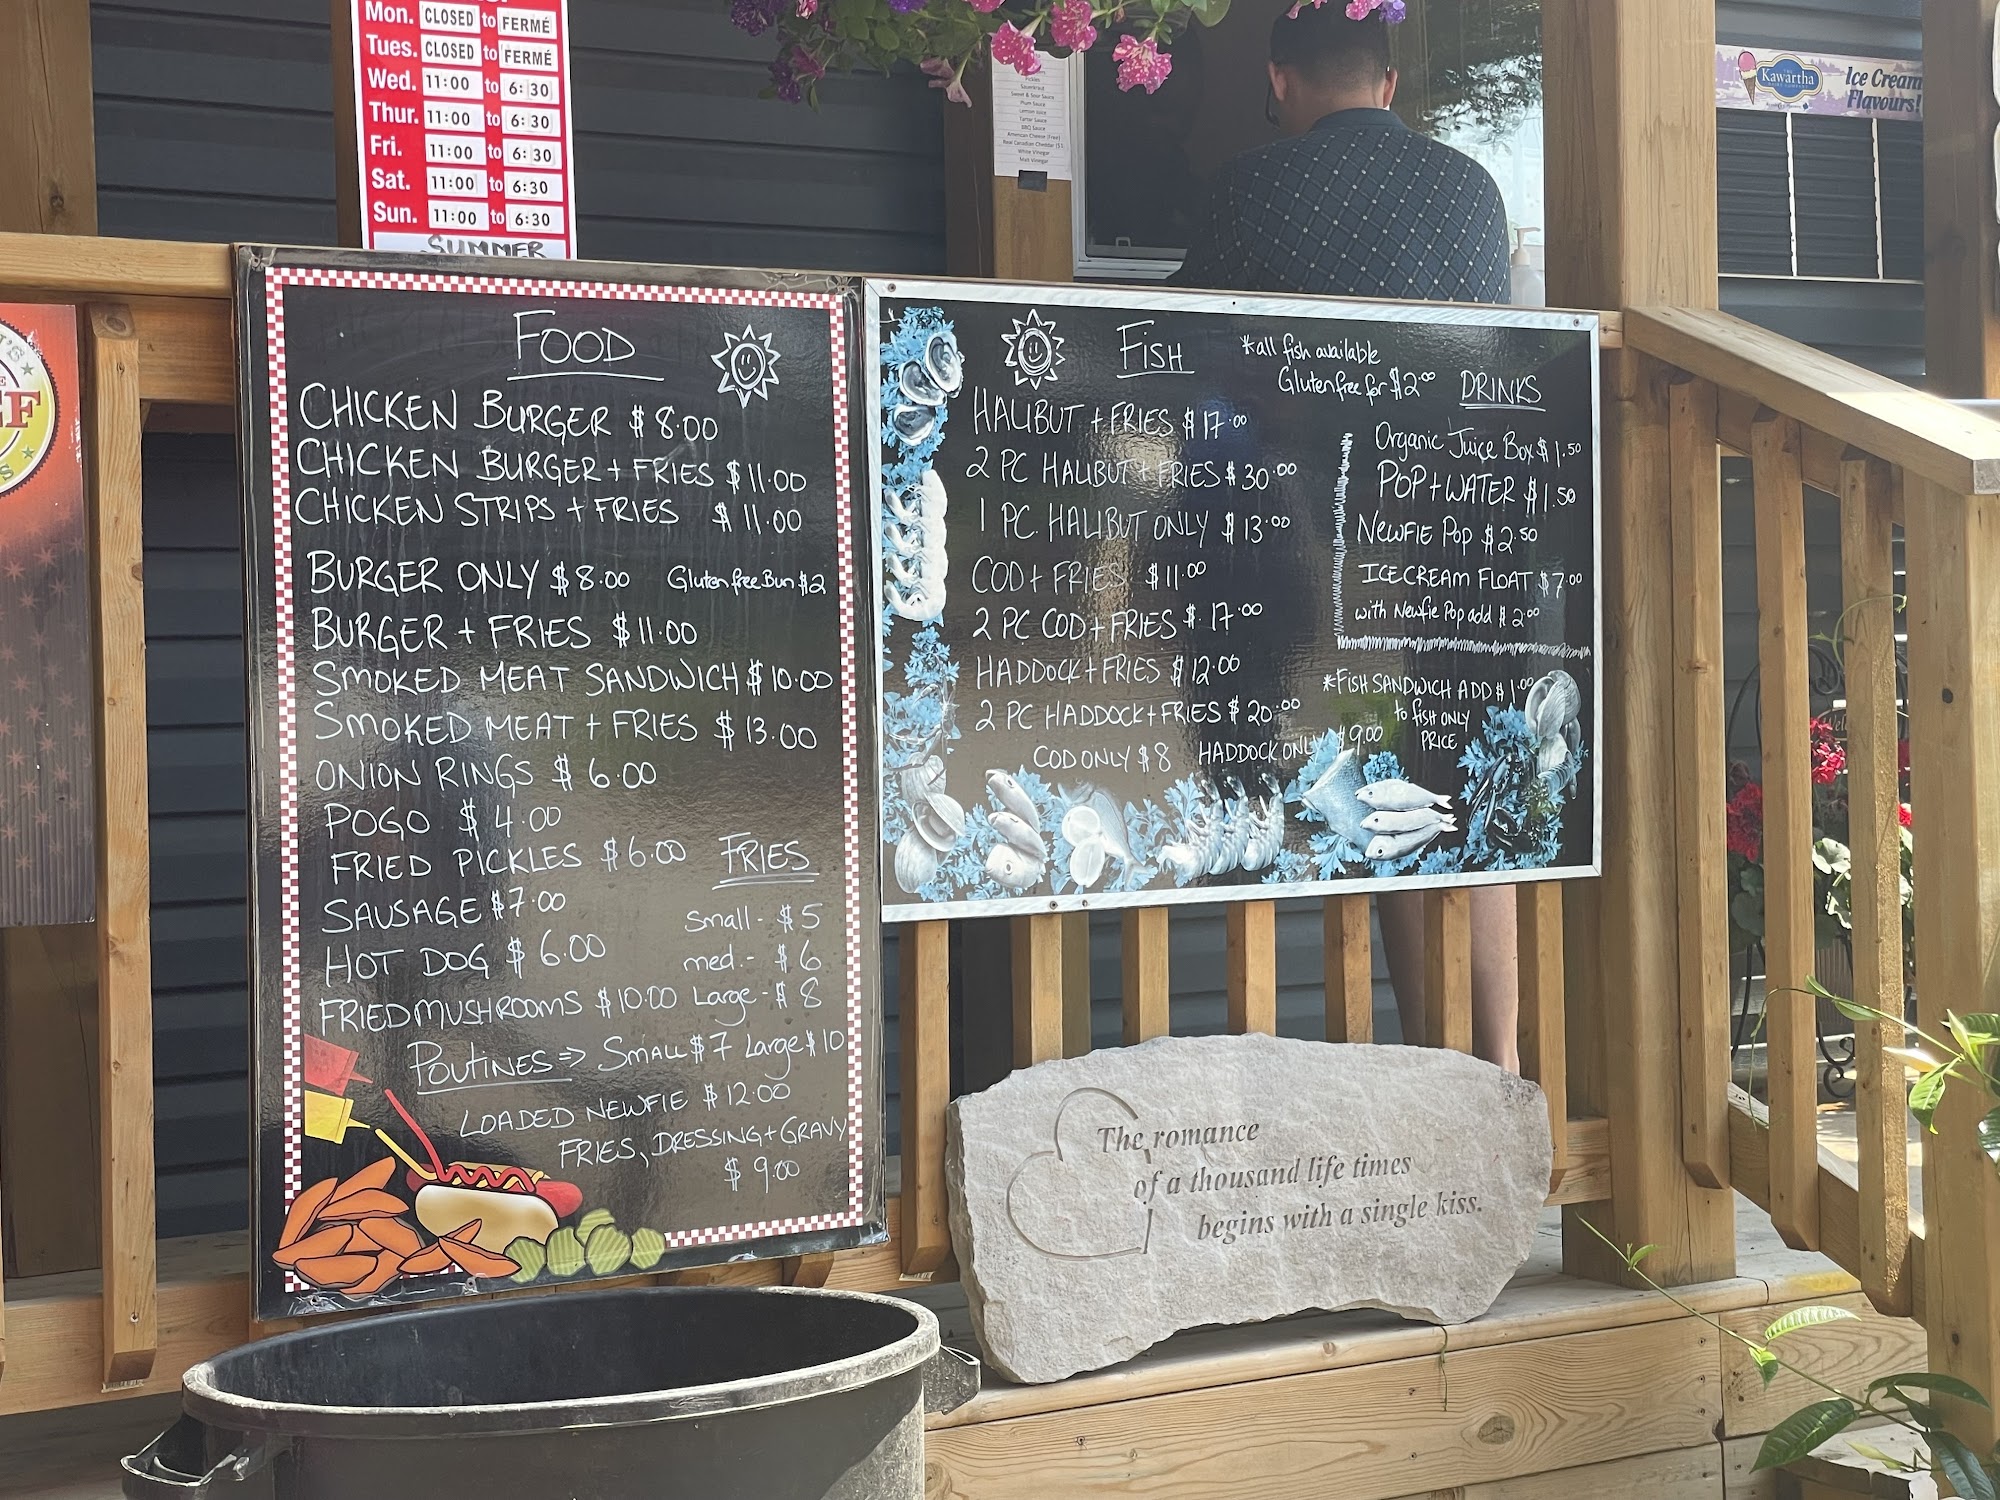 Mon. CLOSED to FERMÉ
Tues. CLOSED to FERMÉ
Wed. 11:00 to 6:30
Thur. 11:00 to 6:30
Fri. 11:00 to 6:30
Sat. 11:00 to 6:30
Sun. 11:00 to 6:30
SUMMER
Pickles
Sauerkraut
Sweet & Sour Sauce
Plum Sauce
Lemon Juice
Tartar Sauce
BBQ Sauce
American Cheese (Free)
Real Canadian Cheddar ($1
White Vinegar
Malt Vinegar
Kawartha
Ice Cream
Flavours!
FOOD
CHICKEN BURGER $8.00
CHICKEN BURGER + FRIES $11.00
CHICKEN STRIPS + FRIES $11.00
BURGER ONLY $8.00 Gluten free Bun $2
BURGER + FRIES $11.00
SMOKED MEAT SANDWICH $10.00
SMOKED MEAT + FRIES $13.00
ONION RINGS $6.00
POGO $4.00
FRIED PICKLES $6.00
SAUSAGE $7.00
HOT DOG $6.00
FRIED MUSHROOMS $10.00
FRIES
Small - $5
med. - $6
Large - $8
POUTINES => SMALL $7 Large $10
LOADED NEWFIE $12.00
FRIES, DRESSING + GRAVY
$9.00
FISH
*all fish available
Gluten free for $2.00
HALIBUT + FRIES $17.00
2 PC HALIBUT + FRIES $30.00
1 PC HALIBUT ONLY $13.00
COD + FRIES $11.00
2 PC COD + FRIES $17.00
HADDOCK + FRIES $12.00
2 PC HADDOCK + FRIES $20.00
COD ONLY $8 HADDOCK ONLY $9.00
DRINKS
Organic Juice Box $1.50
POP + WATER $1.50
NEWFIE POP $2.50
ICE CREAM FLOAT $7.00
with Newfie Pop add $2.00
*FISH SANDWICH ADD $1.00
to fish ONLY
PRICE
The romance
of a thousand life times
begins with a single kiss.